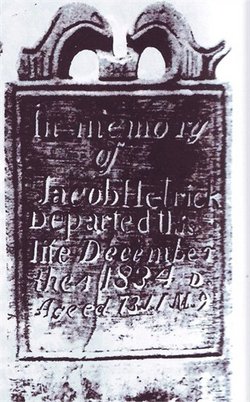 In memory
of
Jacob Hetrick
Departed this
life December
the 1 1834 D
Ageed 73 11 M 9